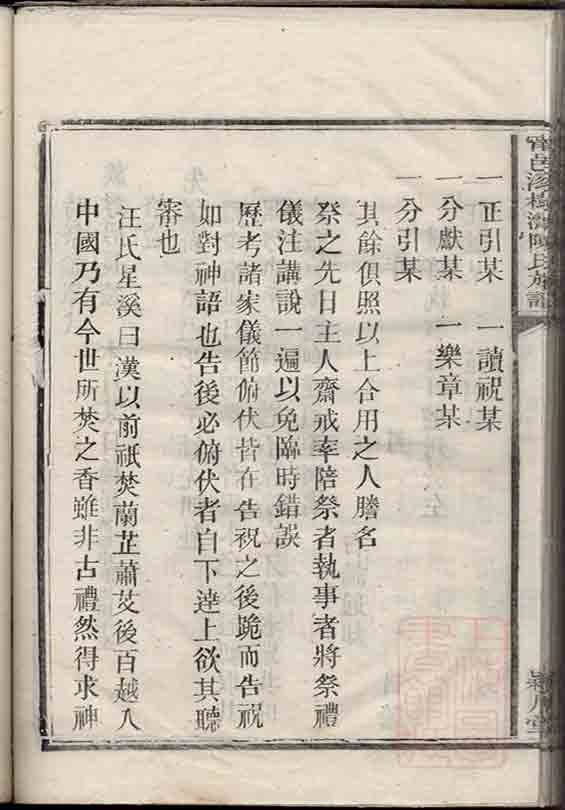 一正引某　一讀祝某
一分獻某　一樂章某
一分引某
其餘俱照以上合用之人謄名
祭之先日主人齋戒率陪祭者執事者將祭禮
儀注講說一遍以免臨時錯誤
歷考諸家儀節俯伏皆在告祝之後跪而告祝
如對神語也告後必俯伏者自下達上欲其聽
審也
汪氏星溪曰漢以前祇焚蘭芷蕭艾後百越入
中國乃有今世所焚之香雖非古禮然得求神